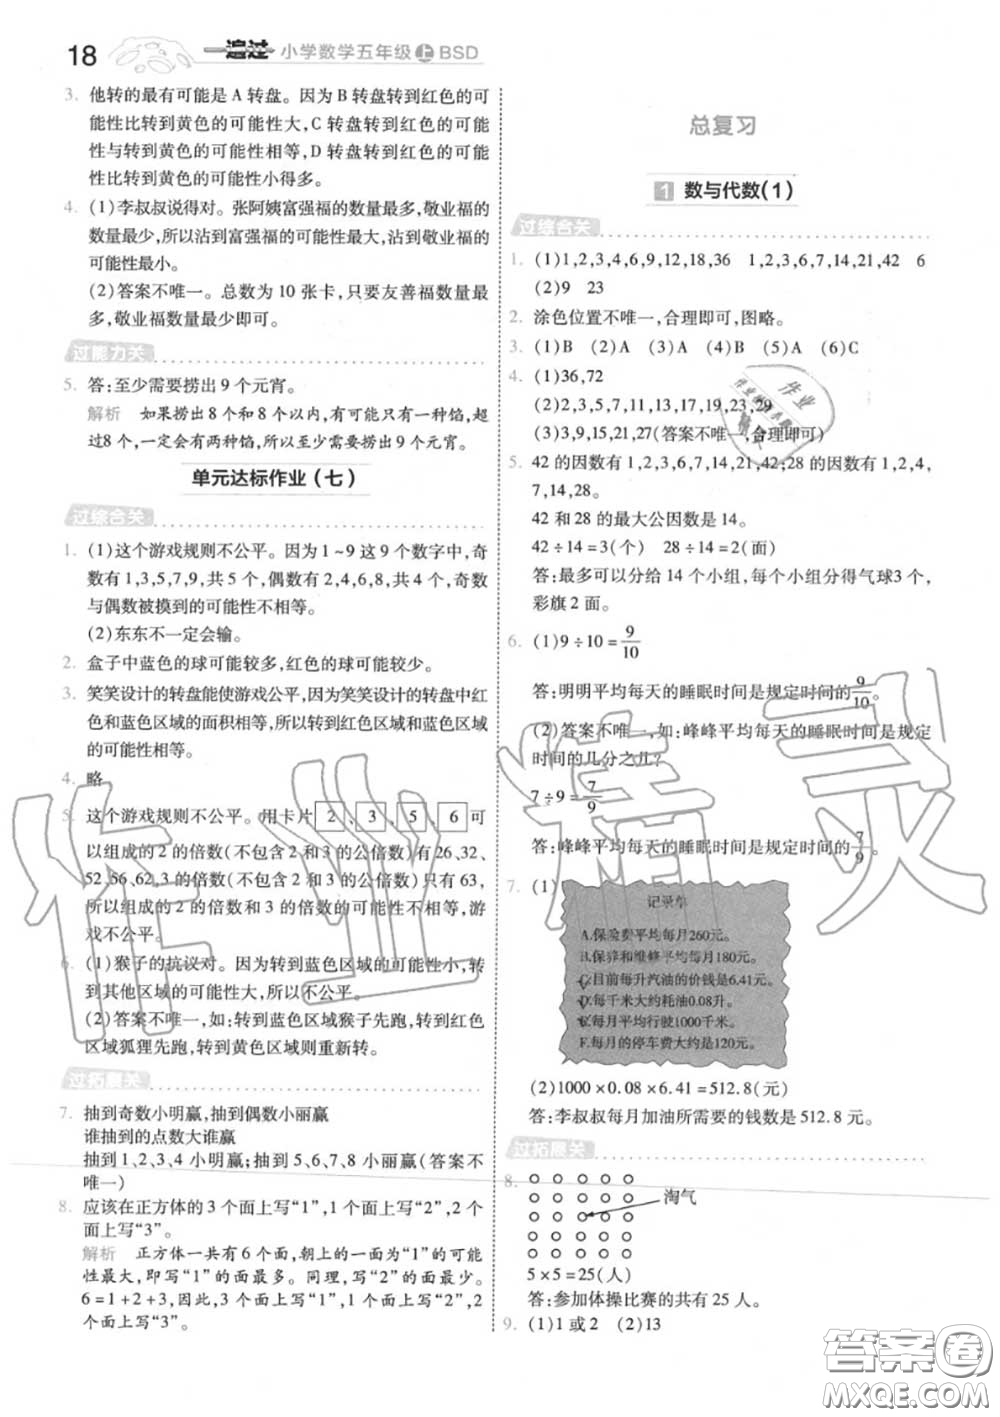 18 一遍过 小学数学五年级 上 BSD
3. 他转的最有可能是 A 转盘。因为 B 转盘转到红色的可
能性比转到黄色的可能性大,C 转盘转到红色的可能
性与转到黄色的可能性相等,D 转盘转到红色的可能
性比转到黄色的可能性小得多。
4. (1)李叔叔说得对。张阿姨富强福的数量最多,敬业福的
数量最少,所以沾到富强福的可能性最大,沾到敬业福的
可能性最小。
(2)答案不唯一。总数为 10 张卡,只要友善福数量最
多,敬业福数量最少即可。
过能力关
5. 答:至少需要捞出 9 个元宵。
解析 如果捞出8个和8个以内,有可能只有一种馅,超
过8个,一定会有两种馅,所以至少需要捞出9个元宵。
单元达标作业(七)
过综合关
1. (1)这个游戏规则不公平。因为 1~9 这 9 个数字中,奇
数有 1,3,5,7,9,共 5 个,偶数有 2,4,6,8,共 4 个,奇数
与偶数被摸到的可能性不相等。
(2)东东不一定会输。
2. 盒子中蓝色的球可能较多,红色的球可能较少。
3. 笑笑设计的转盘能使游戏公平,因为笑笑设计的转盘中红
色和蓝色区域的面积相等,所以转到红色区域和蓝色区域
的可能性相等。
4. 略
5. 这个游戏规则不公平。用卡片 2、3、5、6 可
以组成的 2 的倍数(不包含 2 和 3 的公倍数)有 26,32,
52,56,62,3 的倍数(不包含 2 和 3 的公倍数)只有 63,
所以组成的 2 的倍数和 3 的倍数的可能性不相等,游
戏不公平。
6. (1)猴子的抗议对。因为转到蓝色区域的可能性小,转
到其他区域的可能性大,所以不公平。
(2)答案不唯一,如:转到蓝色区域猴子先跑,转到红色
区域狐狸先跑,转到黄色区域则重新转。
过拓展关
7. 抽到奇数小明赢,抽到偶数小丽赢
谁抽到的点数大谁赢
抽到 1、2、3、4 小明赢;抽到 5、6、7、8 小丽赢(答案不
唯一)
8. 应该在正方体的 3 个面上写“1”,1 个面上写“2”,2 个
面上写“3”。
解析 正方体一共有 6 个面,朝上的一面为“1”的可能
性最大,即写“1”的面最多。同理,写“2”的面最少。
6=1+2+3,因此,3 个面上写“1”,1 个面上写“2”,2
个面上写“3”。
总复习
1 数与代数(1)
过综合关
1. (1)1,2,3,4,6,9,12,18,36 1,2,3,6,7,14,21,42 6
(2)9 23
2. 涂色位置不唯一,合理即可,图略。
3. (1)B (2)A (3)B (4)B (5)A (6)C
4. (1)36,72
(2)2,3,5,7,11,13,17,19,23,29
(3)3,9,15,21,27(答案不唯一,合理即可)
5. 42 的因数有 1,2,3,6,7,14,21,42;28 的因数有 1,2,4,
7,14,28。
42 和 28 的最大公因数是 14。
42÷14=3(个) 28÷14=2(面)
答:最多可以分给 14 个小组,每个小组分得气球3 个,
彩旗 2 面。
6. (1)9÷10=9/10
答:明明平均每天的睡眠时间是规定时间的9/10。
(2)答案不唯一,如:峰峰平均每天的睡眠时间是规定
时间的几分之几?
7÷9=7/9
答:峰峰平均每天的睡眠时间是规定时间的7/9。
7. (1)
记录单
A.保险费平均每月260元。
B.保养和维修平均每月180元。
C.目前每升汽油的价钱是6.41元。
D.每千米大约耗油0.08升。
E.每月平均行驶1000千米。
F.每月的停车费大约是120元。
(2)1000×0.08×6.41=512.8(元)
答:李叔叔每月加油所需要的钱数是 512.8 元。
过拓展关
8.
淘气
5×5=25(人)
答:参加体操比赛的共有 25 人。
9. (1)1 或 2 (2)13
作业精灵
答案圈
MXQE.COM